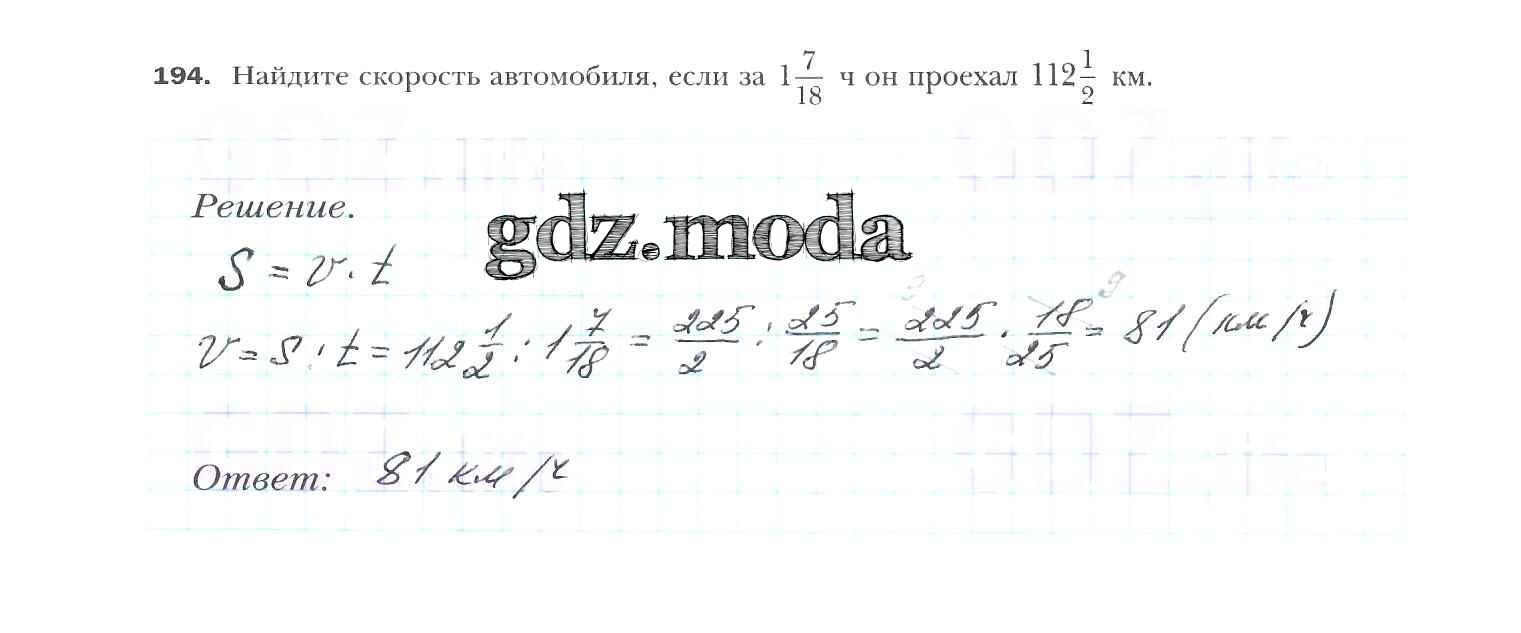 194. Найдите скорость автомобиля, если за 1 7/18 ч он проехал 112 1/2 км.
Решение.
gdz.moda
S = v · t
v = S : t = 112 1/2 : 1 7/18 = 225/2 : 25/18 = 225/2 · 18/25 = 81 (км/ч)
Ответ: 81 км/ч